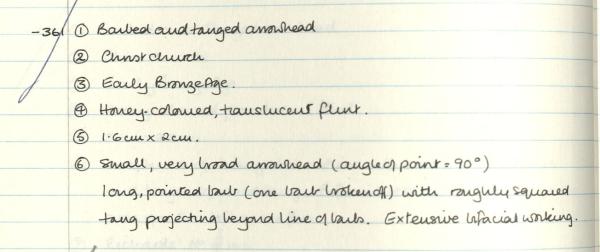 -361 ① Barbed and tanged arrowhead
② Christchurch
③ Early Bronze Age.
④ Honey-coloured, translucent flint.
⑤ 1.6cm x 2cm.
⑥ Small, very broad arrowhead (angle of point = 90°)
long, pointed barb (one barb broken off) with roughly squared
tang projecting beyond line of barbs. Extensive bifacial working.